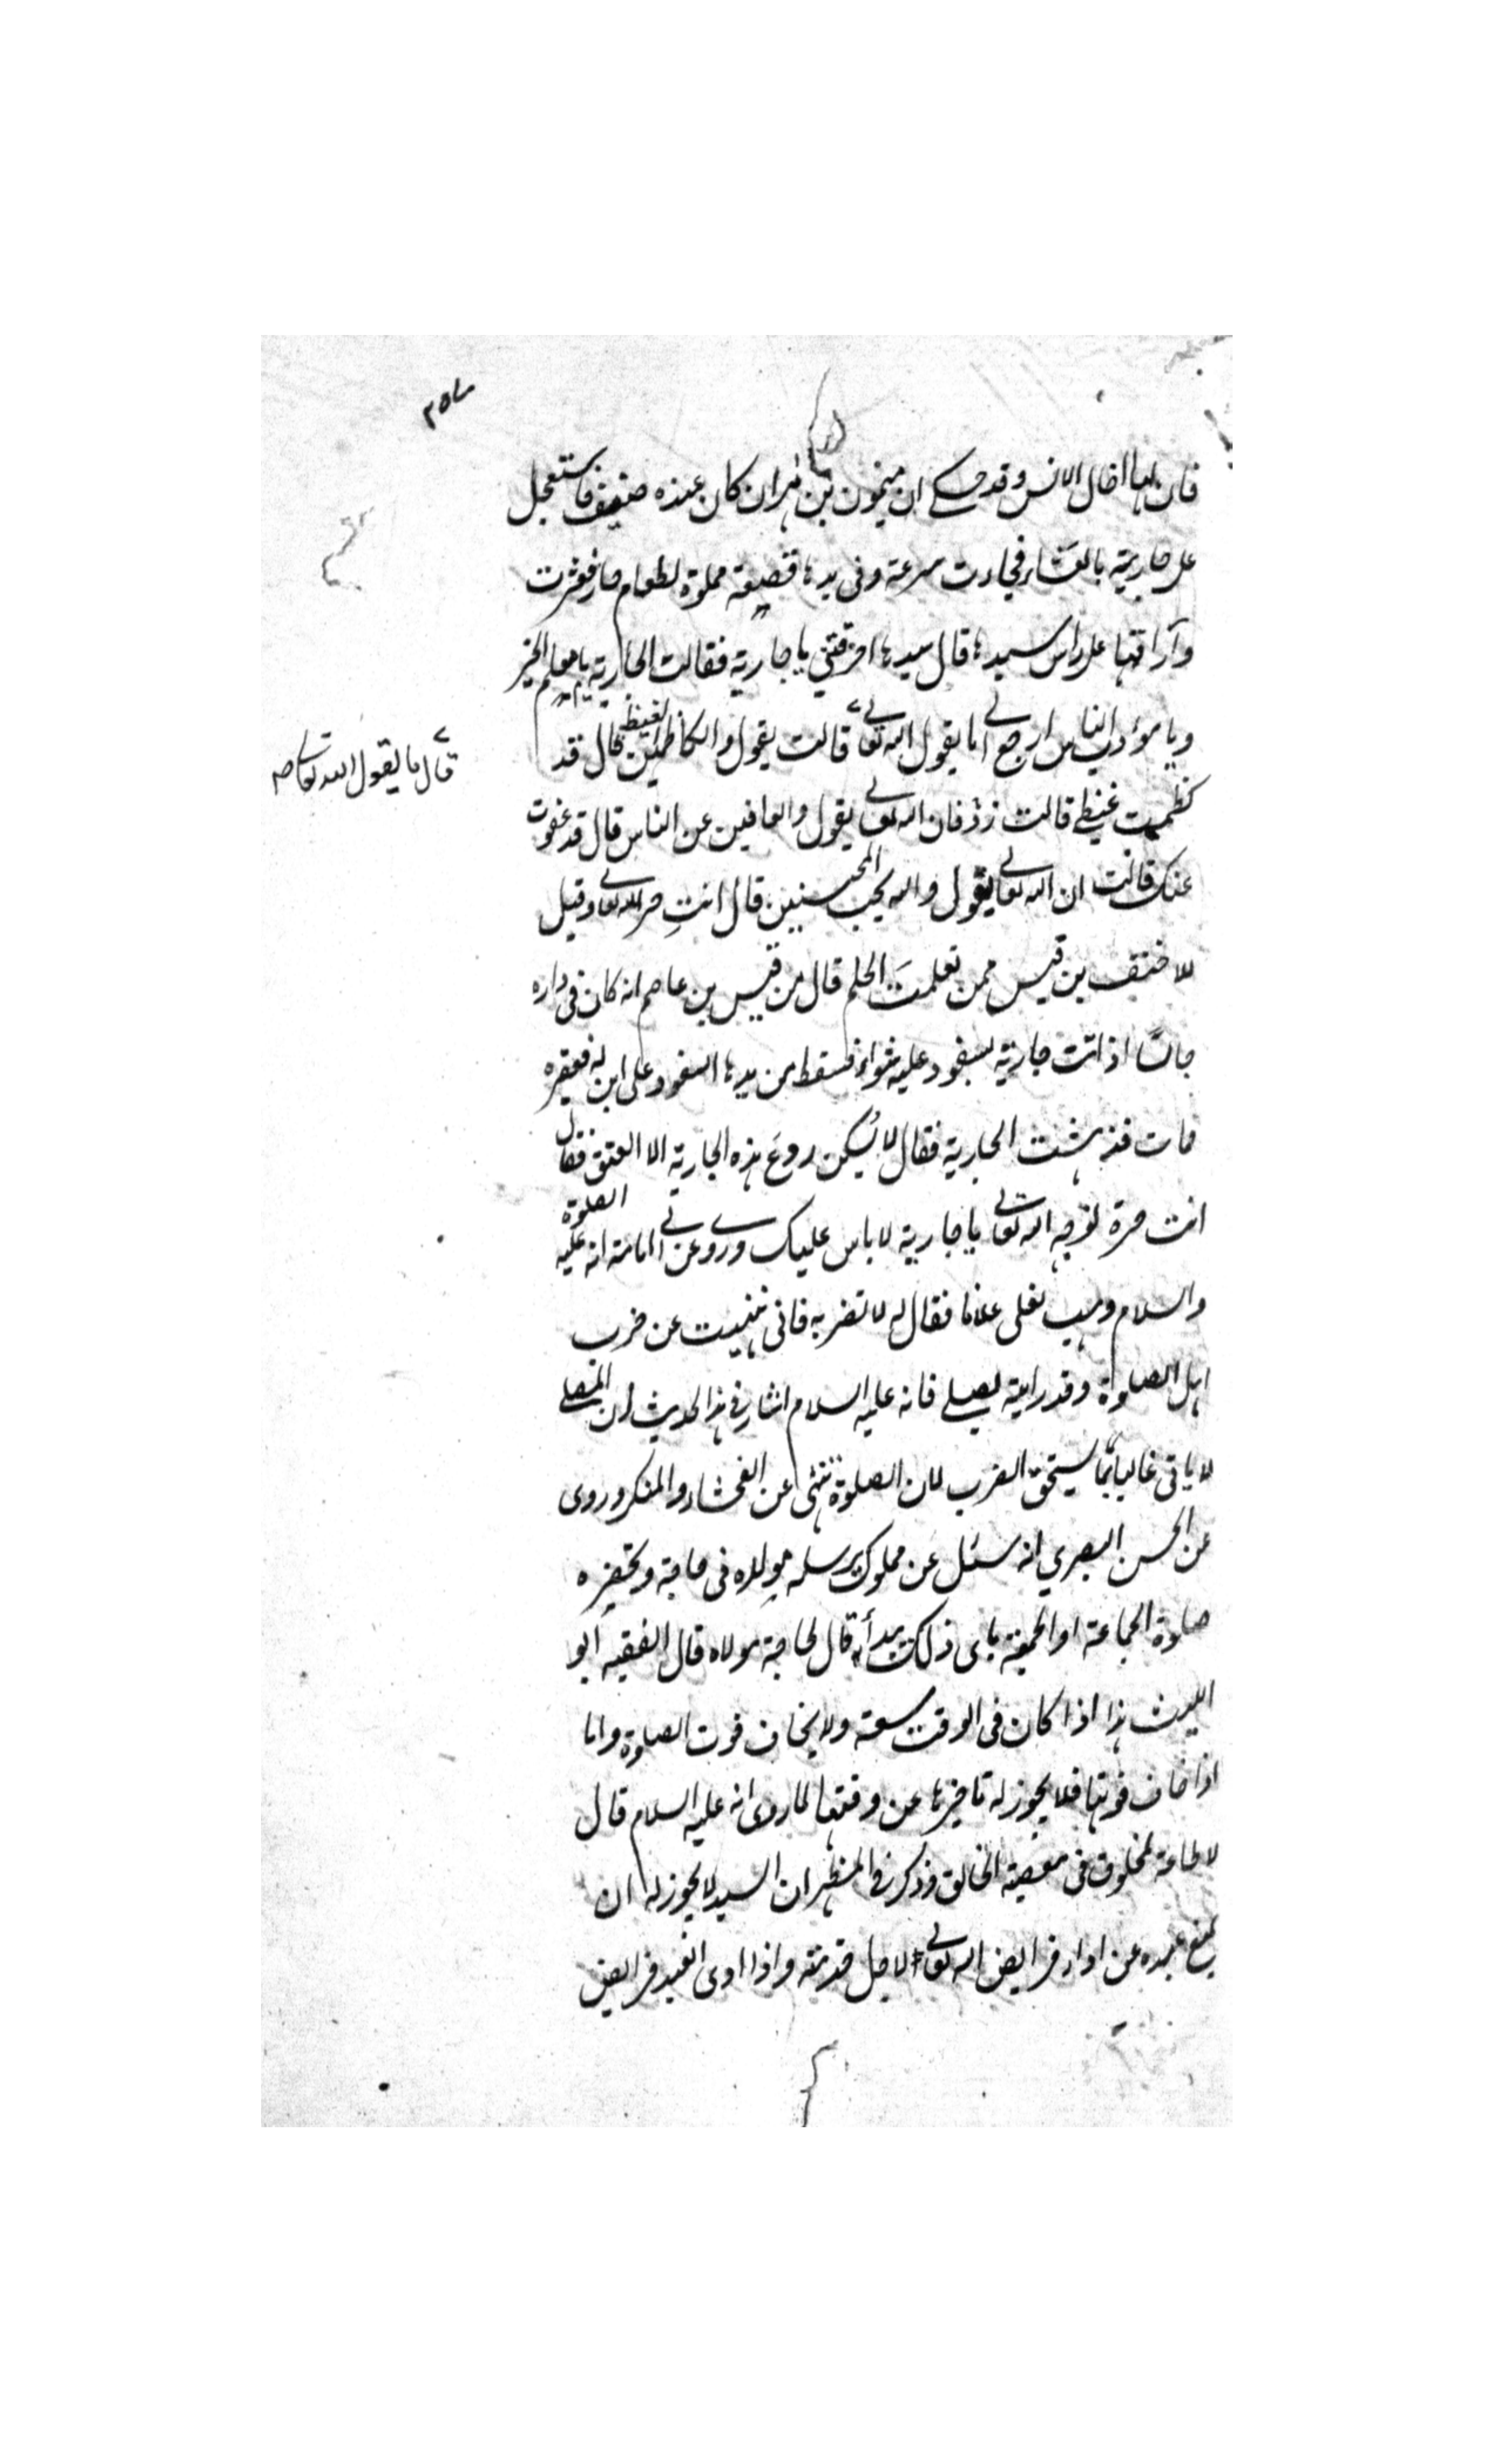 ٢٥٧
فان لها اجالا كالانس وقد حكى ان ميمون بن مهران كان عنده ضيف فاستعجل
على جاريته بالعشاء فجاءت مسرعة وفى يدها قصعة مملوة لطعام حار فعثرت
وأراقتها على رأس سيدها قال سيدها احرقتنى يا جارية فقالت الجارية يا معلم الخير
ويا مؤدب الناس ارجع الى ما يقول الله تعالى قالت يقول والكاظمين الغيظ قال قد
قال ما يقول الله تعالى صح
كظمت غيظى قالت زد فان الله تعالى يقول والعافين عن الناس قال قد عفوت
عنك قالت ان الله تعالى يقول والله يحب المحسنين قال انتِ حرة لله تعالى وقيل
للاحنف بن قيس ممن تعلمتَ الحلم قال من قيس بن عاصم انه كان فى داره
جالسا اذ اتت جارية بسفود عليه شواء فسقط من يدها السفود على ابن له فعقره
فمات فدهشت الجارية فقال لا يُسكن روعَ هذه الجارية الا العتق فقال
انت حرة لوجه الله تعالى يا جارية لا باس عليك وروى عن ابى امامة انه عليه الصلوة
والسلام وهب لعلى غلاما فقال له لا تضربه فانى نهيت عن ضرب
اهل الصلوة وقد رايته يصلى فانه عليه السلام اشار فى هذا الحديث ان المصلى
لا ياتى غالبا بما يستحق الضرب لان الصلوة تنهى عن الفحشاء والمنكر وروى
عن الحسن البصري انه سئل عن مملوك يرسله مولاه فى حاجة وتحضره
صلوة الجماعة او الجمعة باى ذلك يبدأ قال لحاجة مولاه قال الفقيه ابو
الليث هذا اذا كان فى الوقت سعة ولا يخاف فوت الصلوة واما
اذا خاف فوتها فلا يجوز له تاخيرها عن وقتها لما روى انه عليه السلام قال
لا طاعة لمخلوق فى معصية الخالق وذكر فى المظهر ان السيد لا يجوز له ان
يمنع عبده عن اداء فرايض الله تعالى لاجل خدمته واذا ادى العبد فرايض